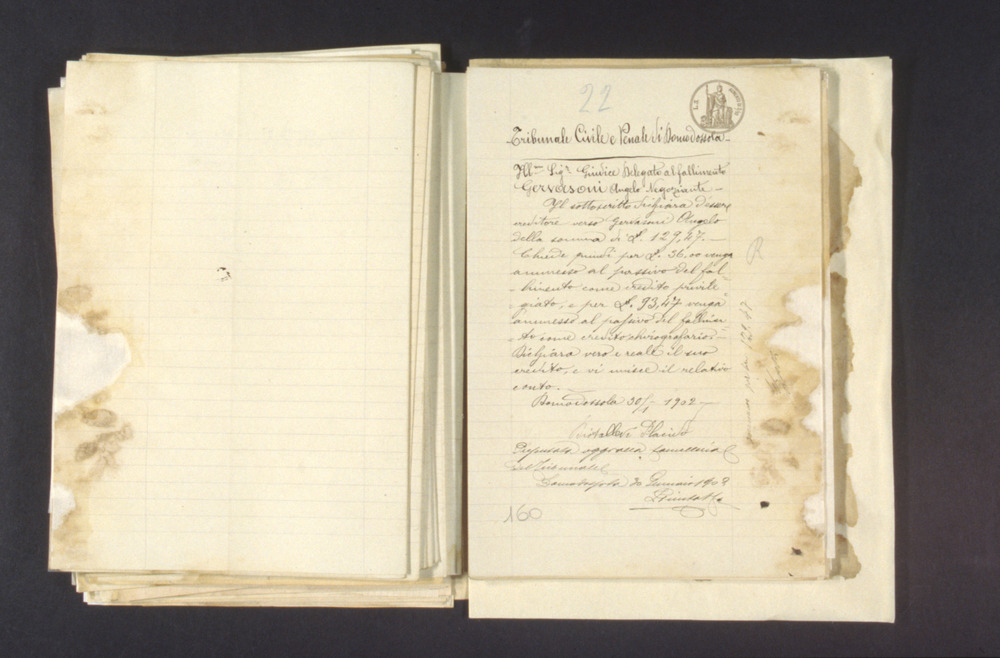 22
Tribunale Civile e Penale di Domodossola
Ill.mo Sig.r Giudice Delegato al fallimento
Gervasoni Angelo Negoziante
Il sottoscritto dichiara d'essere
creditore verso Gervasoni Angelo
della somma di L. 129,47.
Chiede quindi per L. 36,00 venga
ammesso al passivo del fal
limento come credito privile
giato, e per L. 93,47 venga
ammesso al passivo del fallimen
to come credito chirografario.
Dichiara vero e reale il suo
credito, e vi unisce il relativo
conto.
Domodossola 30/1 1902
Cancelleria
del Tribunale
Domodossola 30 Gennaio 1902
160
per L. 129.47